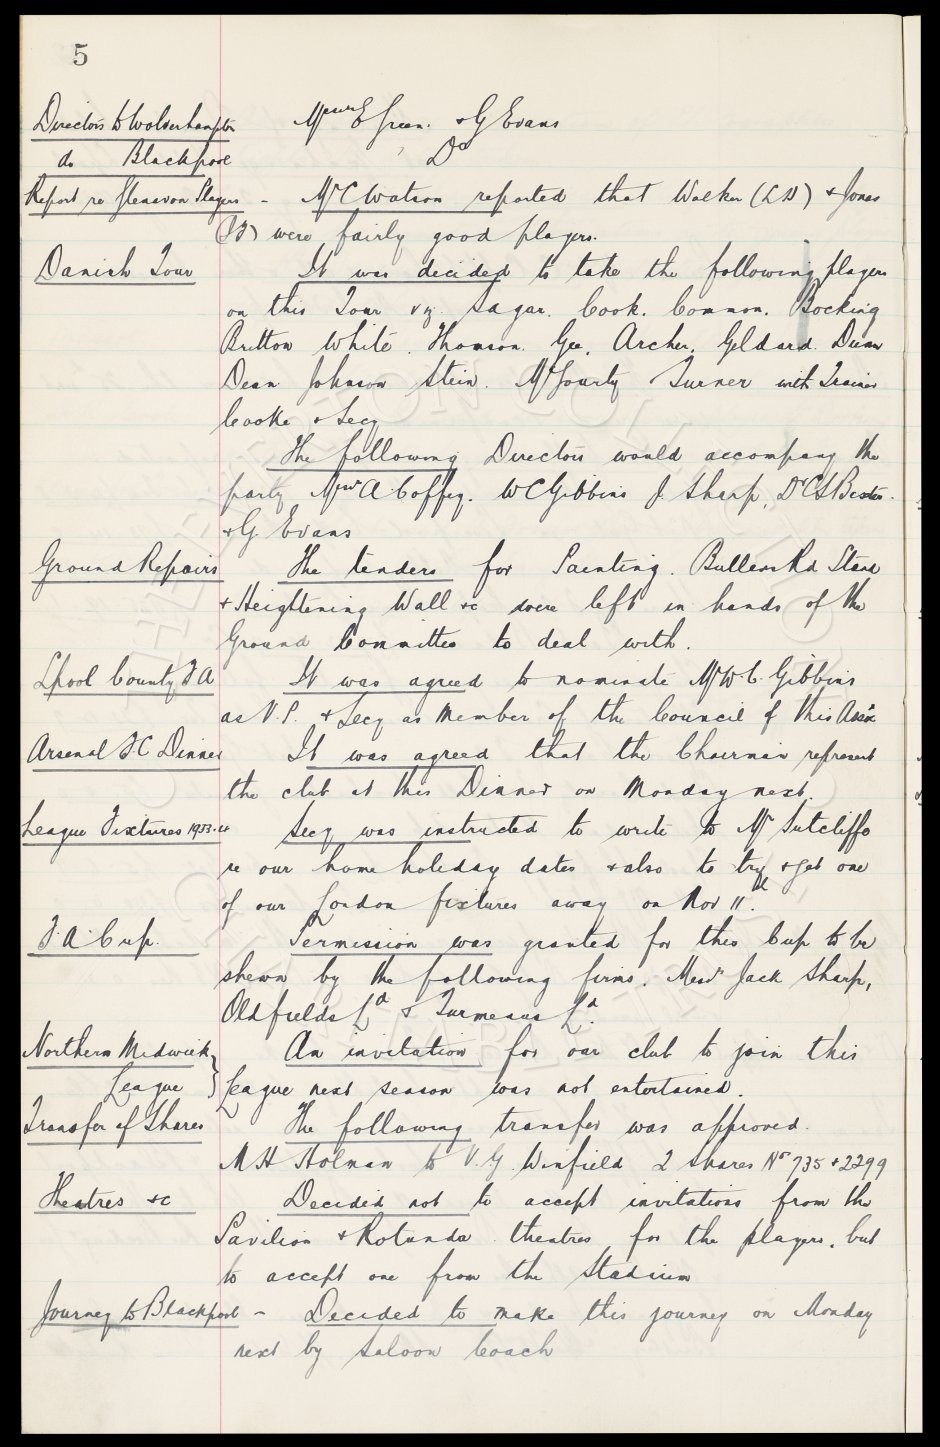 5
Directors to Wolverhampton Messrs E Green. & G Evans
do Blackpool Do
Report re Glenavon Players - Mr C Watson reported that Walker (LH) & Jones
were fairly good players.
Danish Tour It was decided to take the following players
on this Tour viz. Sagar. Cook. Common. Bocking
Britton White. Thomson. Gee. Archer. Geldard. Dunn
Dean Johnson Stein. McGourty Turner with Trainer
Cooke & Secy
The following Directors would accompany the
party Messrs A Coffey. W C Gibbins J. Sharp, Dr C S Baxter.
& G. Evans
Ground Repairs The tenders for Painting. Bullens Rd Stand
& Heightening Wall &c were left in hands of the
Ground Committee to deal with.
Lpool County F A It was agreed to nominate Mr W C. Gibbins
as V.P. & Secy as Member of the Council of this Assn
Arsenal F C Dinner It was agreed that the Chairman represent
the club at this Dinner on Monday next.
League Fixtures 1933.4 Secy was instructed to write to Mr Sutcliffe
re our home holiday dates & also to try & get one
of our London fixtures away on Nov 11th.
F.A. Cup. Permission was granted for this Cup to be
shewn by the following firms. Messrs Jack Sharp,
Oldfields Ld & Turmeaus Ld.
Northern Midweek An invitation for our club to join this
League League next season was not entertained.
Transfer of Shares The following transfer was approved.
M H Holman to V. G. Winfield 2 Shares Nos 735 & 2299
Theatres &c Decided not to accept invitations from the
Pavilion & Rotunda theatres for the players, but
to accept one from the Stadium
Journey to Blackpool - Decided to make this journey on Monday
next by Saloon Coach